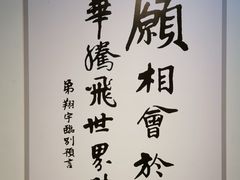 願相會於
華騰飛世界
弟翔宇臨別預言